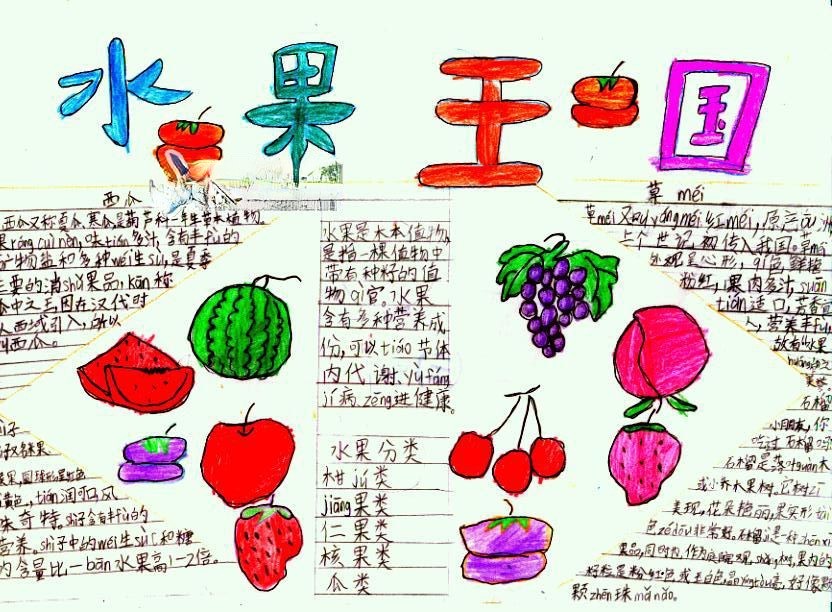 水果王国
西瓜
西瓜又称夏瓜、寒瓜是葫芦科一年生草本植物,
果ráng cuì nèn,味tián多汁,含有丰fù的
矿物盐和多种wéi生sù,是夏季
主要的消shǔ果品,kān称
瓜中之王因在汉代时
从西域引入,所以
叫西瓜。
水果是木本植物,
是指一棵植物中
带有种籽的值
物qì官。水果
含有多种营养成
份,可以tiáo节体
内代谢、yù fáng
jí病、zēng进健康。
水果分类
柑jú类
jiāng果类
仁果类
核果类
瓜类
草méi
草méi又叫yáng méi红méi,原产
上个世纪初传入我国。草méi
外观呈心形,
粉红,果内多汁suān
tián适口,芳香
人,营养丰fù
故有“水果
huáng
美称
石榴
小朋友,你
吃过石榴吗
石榴是落叶guàn木
或小乔木果树。它树zī
美现,花朵艳丽,果实形tài
色zé dōu非常好。石榴是一种zhēn xī
果品,同时
籽粒是粉红色或玉白色,好像颗
颗zhēn珠mǎ nǎo。
shì子
味奇特。shì子含有丰fù的
营养。shì子中的wéi生sù C和糖
的含量比一bān水果高1-2倍。